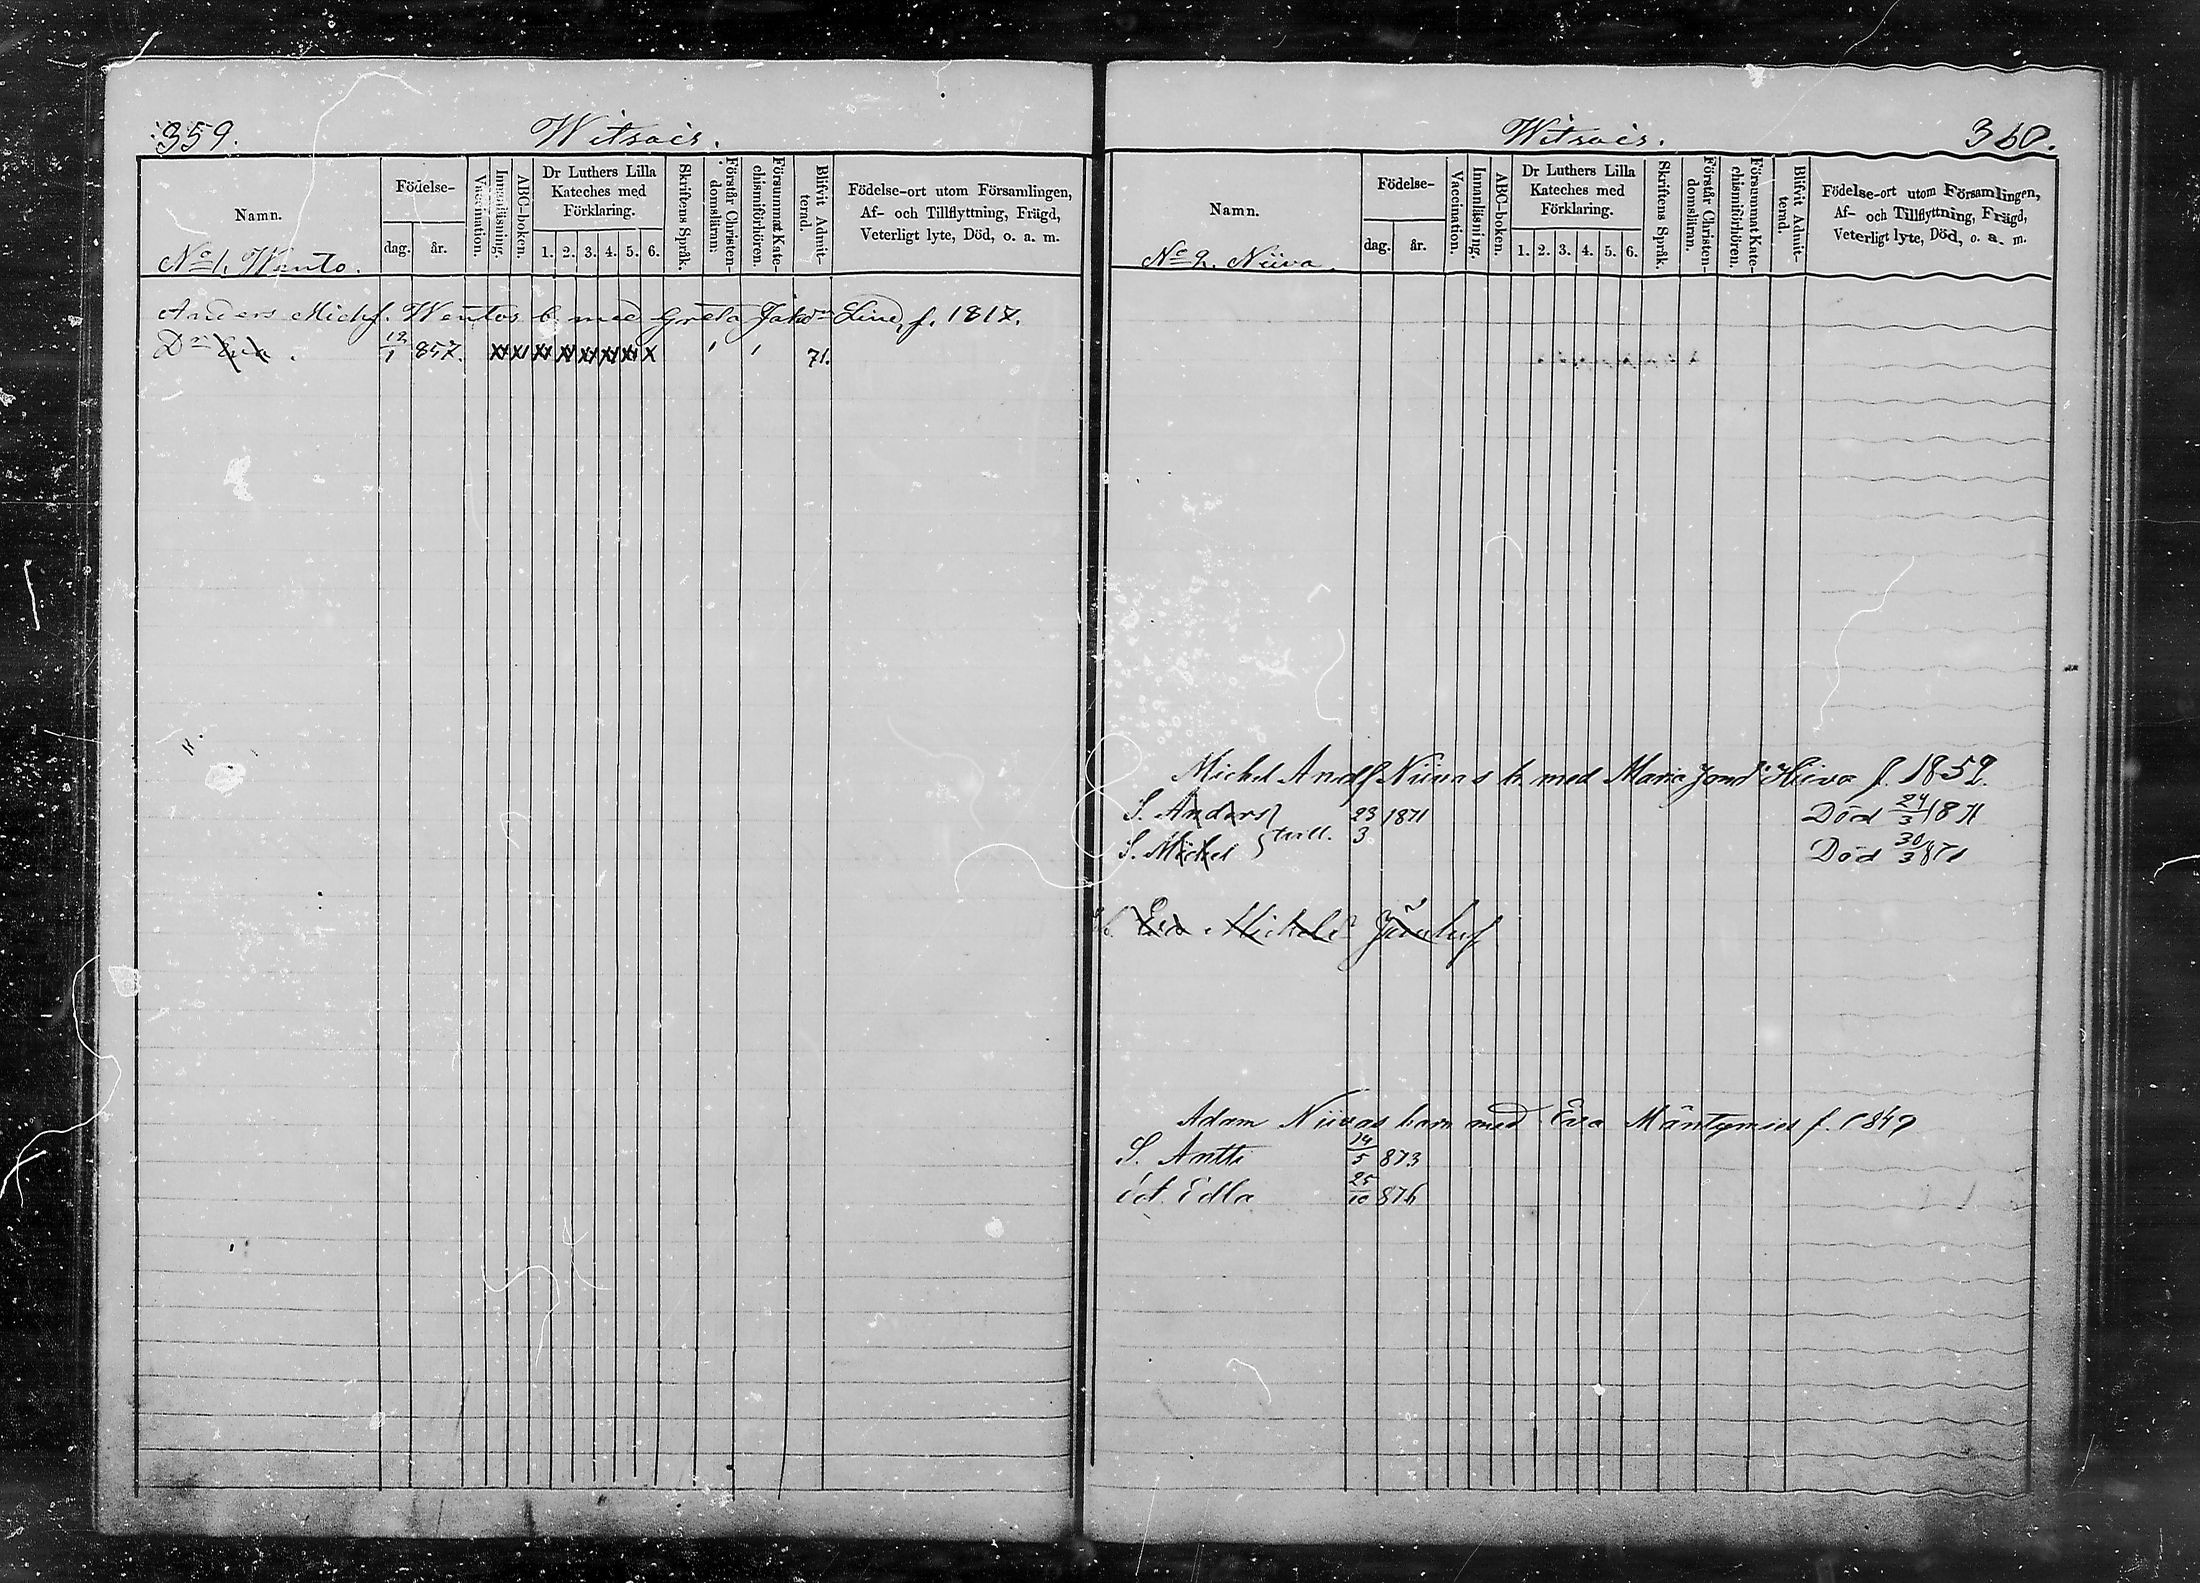 359.
Witsais.
Namn.
Födelse-
dag. år.
Vaccination.
Innanläsning.
ABC-boken.
Dr Luthers Lilla Kateches med Förklaring.
1. 2. 3. 4. 5. 6.
Skriftens Språk.
Förstår Christen-domsläran.
Försummat Kate-chismiförhören.
Blifvit Admit-terad.
Födelse-ort utom Församlingen,
Af- och Tillflyttning, Frägd,
Veterligt lyte, Död, o. a. m.
No 1. Wento.
Anders Michf. Wentos b. med Greta Jakobs Lind, f. 1817.
Dr Eva. 12/1 857. XX XI XX XI XX XI XI X ' ' 71.
Witsais.
360.
Namn.
Födelse-
dag. år.
Vaccination.
Innanläsning.
ABC-boken.
Dr Luthers Lilla Kateches med Förklaring.
1. 2. 3. 4. 5. 6.
Skriftens Språk.
Förstår Christen-domsläran.
Försummat Kate-chismiförhören.
Blifvit Admit-terad.
Födelse-ort utom Församlingen,
Af- och Tillflyttning, Frägd,
Veterligt lyte, Död, o. a. m.
No 2. Niiva.
Michel Andf Niivas b. med Maria f. 1852.
S. Anders } tvill. 23/3 1871 Död 24/3 1871
S. Michel Död 30/3 871
Eva Michelsd
Adam Niivas barn med Eva Mäntymies f. 1849
S. Antti 14/5 873
Edla 25/10 876